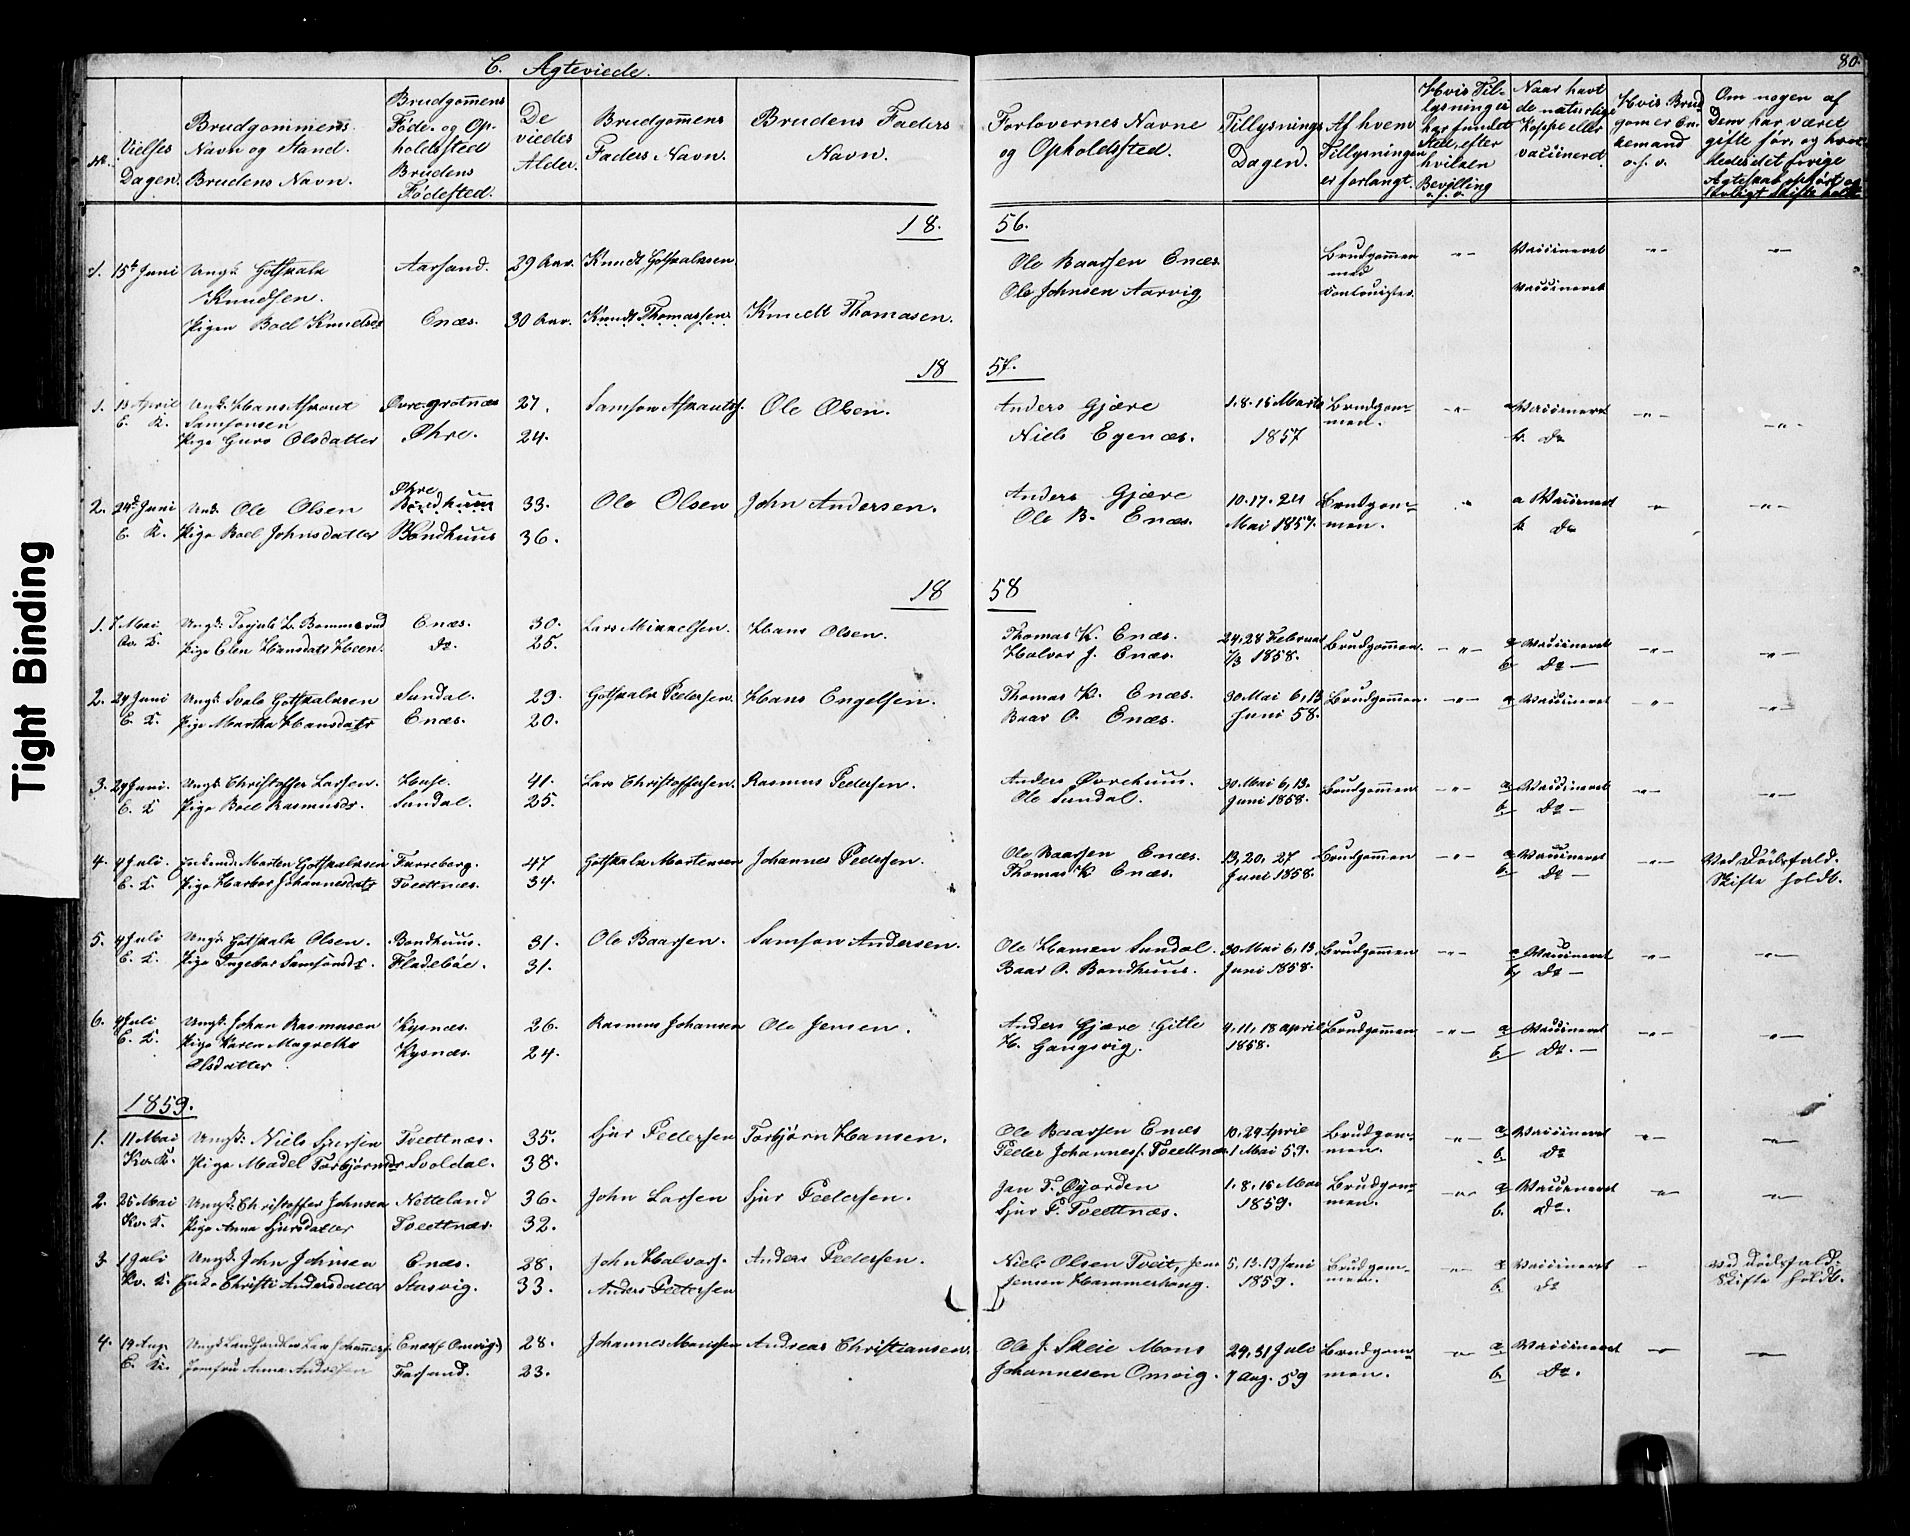 Tight Binding
C. Agteviede.
80.
Nr.
Vielses Dagen.
Brudgommens Navn og Stand. Brudens Navn.
Brudgom̅ens Føde- og Opholdssted Brudens Fødested.
De viedes Alder.
Brudgom̅ens Faders Navn.
Brudens Faders Navn.
Forlovernes Navne og Opholdssted.
Tillysnings Dagen.
Af hvem Tillysningen er forlangt.
Hvis Tillysninger har fundet Sted, efter hvilken Bevilling o.s.v.
Naar havt de naturlige Kopper eller vaccineret.
Hvis Brudgom er Enkemand o.s.v.
Om nogen af Dem har været gifte før, og hvorledes det forrige Agteskab ophørt og lovligt Skifte holdt.
18. 56.
1. 15t Juni Ungk. Gotskalk Aarsand. 29 Aar. Knudt Gotskalksen Ole Baarsen Enæs. Brudgommen -"- Vaccineret -"- -"-
Knudsen. med
Ole Johnsen Aarvig Vaccineret
Pigen Boel Knudsdr Enæs. 30 Aar. Knudt Thomassen. Knudt Thomasen.
18 57.
1. 13 April Ungk. Hans Askout Øvre-grotnæs 27. Samson Askoutss. Ole Olsen. Anders Gjære 1. 8. 15 Marts Brudgom- -"- a Vaccineret -"-
E. K. Samsonsen men. -"-
Pige Guro Olsdatter Øhre. 24. Niels Egenæs. 1857 b. Do
2. 24d Juni Ungk. Ole Olsen Øhre Bondhuus 33. Ole Olsen John Andersen. Anders Gjære 10. 17. 24 Brudgom- a Vaccineret -"- -"-
E. K. Pige Boel Johnsdatter Bondhuus 36. Ole B. Enæs. Mai 1857. men. b. Do
18 58
1. 7 Mai Ungk. Torjuls L. Bommerud Enæs. 30. Lars Mikkelsen. Hans Olsen. Thomas K. Enæs. 24, 28 Februar Brudgom̅en. -"- a Vaccineret -"- -"-
Kv. K. Pige Elen Hansdatr Heen. Do. 25. Halvor J. Enæs. 7/3 1858. b. Do -
2. 24 Juni Ungk. Svale Gotskalksen Sundal. 29. Gotskalk Pedersen. Hans Engelsen. Thomas K. Enæs. 30 Mai 6, 13 Brudgom̅en. -"- a Vaccineret -"- -"-
E. K. Pige Martha Hansdatr Enæs. 20. Baar O. Enæs. Juni 58.
3. 24 Juni. Ungk. Christoffer Larsen. Huse. 41. Lars Christoffersen. Rasmus Pedersen. Anders Øvrehuus. 30 Mai 6, 13. Brudgom̅en. -"- a Vaccineret -"- -"-
E. K Pige Boel Rasmusdr. Sundal. 25. Ole Sundal. Juni 1858. b. Do -
4. 4 Juli. Enkemd. Morten Gotskalksen Furreberg. 47 Gotskalk Mortensen Johannes Pedersen. Ole Baarsen Enæs. 13, 20, 27 Brudgom̅en -"- a Vaccineret -"- Ved Dødsfald.
E. K. Pige Harbor Johannesdatr Tvedtnæs. 34. Thomas K Enæs. Juni 1858. b. Do - Skifte holdt.
5. 4 Juli Ungk. Gotskalk Olsen. Bondhuus. 31. Ole Baarsen. Samson Andersen. Ole Hansen Sundal. 30 Mai 6, 13. Brudgom̅en -"- a Vaccineret -"- -"-
E. K. Pige Ingebor Samsonsdr. Fladebøe. 31. Baar O. Bondhuus. Juni 1858. b. Do -
6. 4 Juli Ungk. Johan Rasmusen Kysnæs. 26. Rasmus Johansen Ole Jensen. Anders Gjære Gitle 4, 11, 18 april Brudgom̅en -"- a Vaccineret -"- -"-
E. K. Pige Karen Magrethe Kysnæs. 24. H. Gangsvig. 1858. b. Do. -
Olsdatter
1859.
1. 11 Mai Ungk. Niels Sjursen Tvedtnæs. 35. Sjur Pedersen Torbjørn Hansen. Ole Baarsen Enæs 10. 24 Aprie Brudgom- -"- a Vaccineret -"- -"-
Kv. K. Pige Madel Torbjørnsdr Svoldal. 38. Peder Johanness. Tvedtnæs 1 Mai 59. men. b. Do
2. 25 Mai Ungk. Christoffer Johnsen Netteland 36. John Larsen Sjur Pedersen. Jan T. Øyorden 1. 8. 15 Mai Brudgom- -"- a Vaccineret -"- -"-
Kv. K. Pige Anna Sjursdatter Tvedtnæs. 32. Sjur P. Tvedtnæs. 1859. men. b. Do.
3 1 Juli Ungk. John Johnsen Enæs. 28. John Halvors. Anders Pedersen. Niels Olsen Tveit, Jens 5, 13. 19 Juni Brudgom- -"- a Vaccineret - Ved Dødsfald.
Kv. K. Enke Christi Andersdatter Stusvig. 33. Anders Pedersen Jensen Hammerhoug. 1859. men. b. Do Skifte holdt.
4. 19 Aug. Ungk Landhandler Lars Johanness. Enæs (Omvig) 28. Johannes Monssen Andreas Christiansen. Ole J. Skeie Mons 24, 31 Juli Brudgom- -"- a Vaccineret -"- -"-
E. K. Jomfru Anna Andresen Farsund. 23. Johannesen Omvig. 7 Aug. 59 men. b. Do.